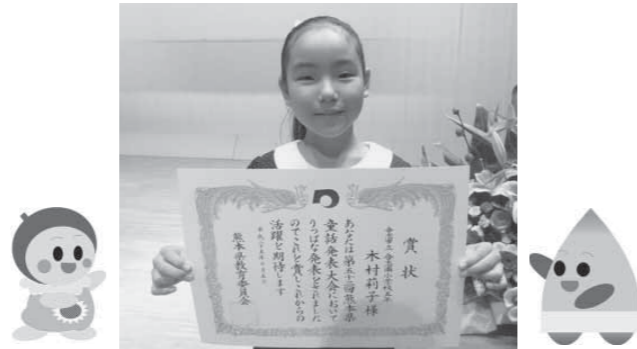 賞状
合志市立 合志南小学校五年
木村莉子様
あなたは第五十回熊本県
童話発表大会において
りっぱな発表をされました
のでこれを賞しこれからの
活躍を期待します
熊本県教育委員会